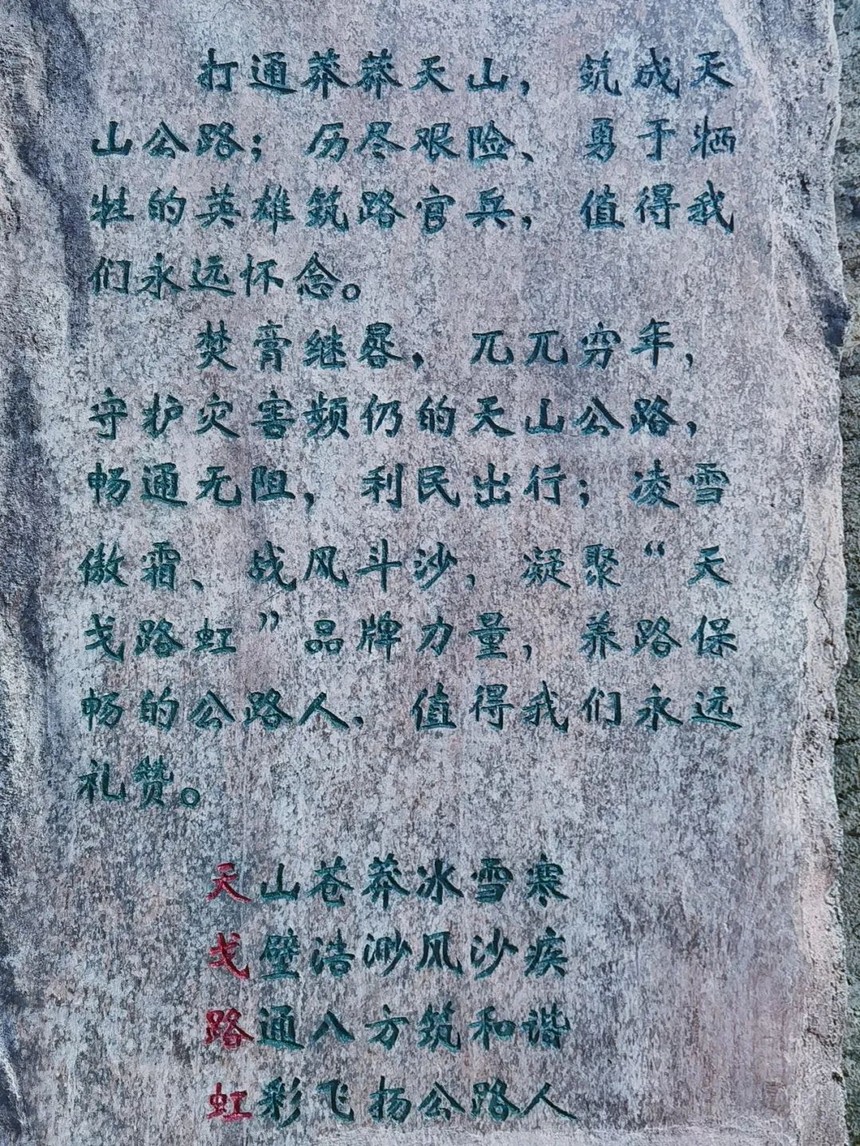 打通莽莽天山，筑成天
山公路；历尽艰险、勇于牺
牲的英雄筑路官兵，值得我
们永远怀念。
焚膏继晷，兀兀穷年，
守护灾害频仍的天山公路，
畅通无阻，利民出行；凌雪
傲霜、战风斗沙，凝聚“天
戈路虹”品牌力量，养路保
畅的公路人，值得我们永远
礼赞。
天山苍莽冰雪寒
戈壁浩渺风沙疾
路通八方筑和谐
虹彩飞扬公路人